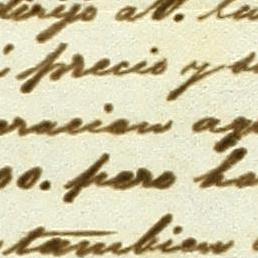 dirijo a V.
precio y
eracion
00. pero ha
tambien